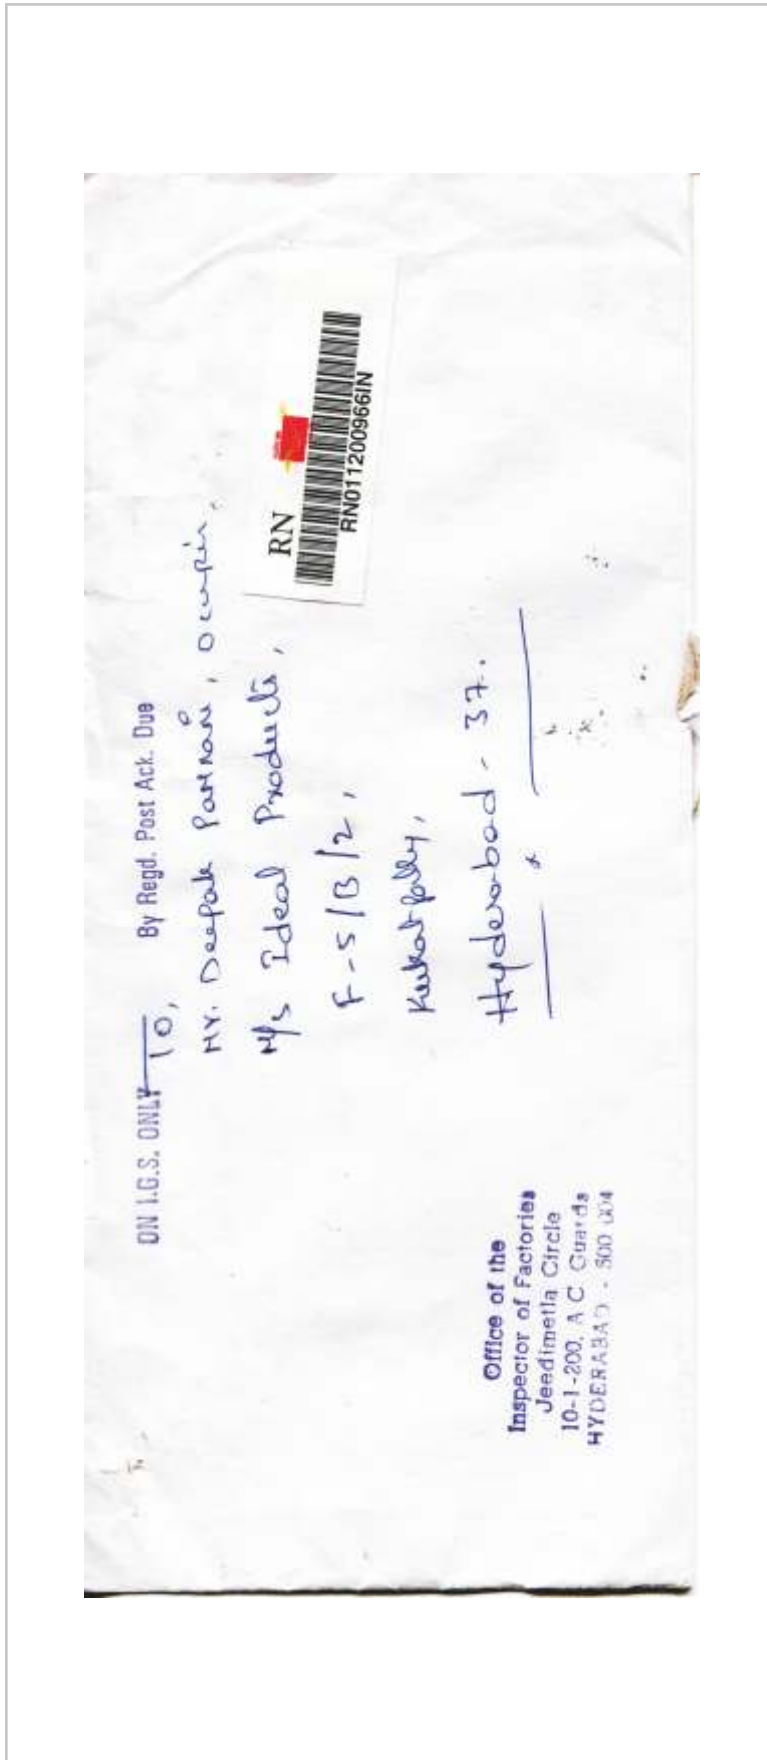 ON I.G.S. ONLY By Regd. Post Ack. Due
To,
Mr. Deepak Parnani, Occupier,
M/s Ideal Products,
F-5/B/2,
Kukatpally,
Hyderabad - 37.
RN
RN011200966IN
Office of the
Inspector of Factories
Jeedimetla Circle
10-1-200, A C Guards
HYDERABAD - 500 004